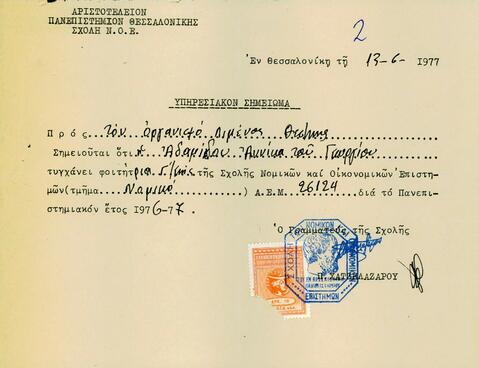 ΑΡΙΣΤΟΤΕΛΕΙΟΝ
ΠΑΝΕΠΙΣΤΗΜΙΟΝ ΘΕΣΣΑΛΟΝΙΚΗΣ
ΣΧΟΛΗ Ν.Ο.Ε.
2
Ἐν Θεσσαλονίκῃ τῇ 13-6- 1977
ΥΠΗΡΕΣΙΑΚΟΝ ΣΗΜΕΙΩΜΑ
Πρός...τόν ὀργανισμό Λιμένος Θεσ/νίκης
Σημειοῦται ὅτι ἡ Ἀδαμίδου Ἀννίκα τοῦ Γεωργίου
τυγχάνει φοιτήτρια Γ'/ἔτους τῆς Σχολῆς Νομικῶν καί Οἰκονομικῶν Ἐπιστη-
μῶν(τμῆμα ..Νομικό........) Α.Ε.Μ 26124 διά τό Πανεπι-
στημιακόν ἔτος 1976-77.
Ὁ Γραμματεύς τῆς Σχολῆς
ΣΧΟΛΗ ΝΟΜΙΚΩΝ
ΕΠΙΣΤΗΜΩΝ
Π. ΧΑΤΖΗΛΑΖΑΡΟΥ